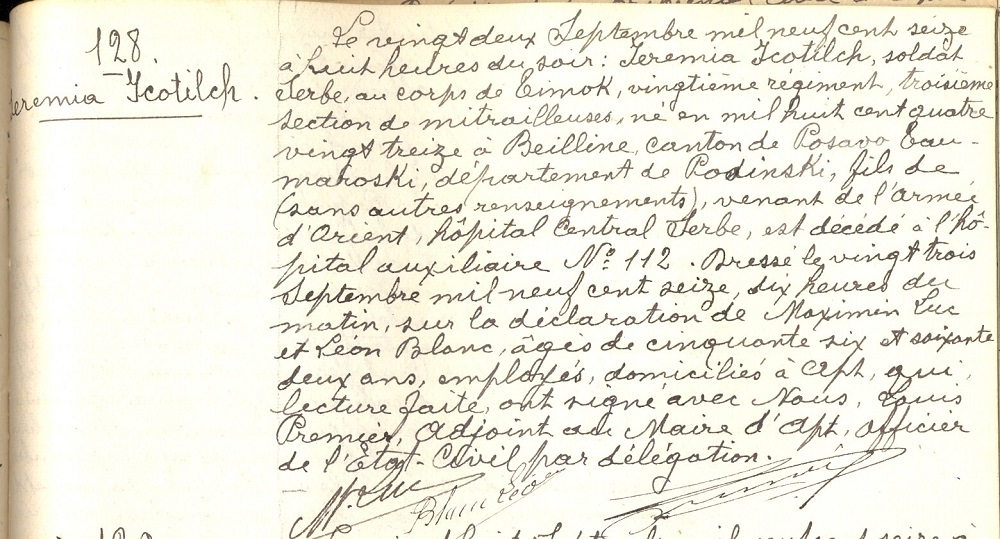 128.
Jeremia Icotilch.
Le vingt deux Septembre mil neuf cent seize
à huit heures du soir: Jeremia Icotilch, soldat
Serbe, au corps de Timok, vingtième régiment, troisième
section de mitrailleuses, né en mil huit cent quatre
vingt treize à Beilline, canton de Posavo Tau-
maroski, département de Podinski, fils de
(sans autres renseignements), venant de l'Armée
d'Orient, hôpital Central Serbe, est décédé à l'hô-
pital auxiliaire Nº 112. Dressé le vingt trois
Septembre mil neuf cent seize, dix heures du
matin, sur la déclaration de Maximin Luc
et Léon Blanc, âgés de cinquante six et soixante
deux ans, employés, domiciliés à Apt, qui,
lecture faite, ont signé avec Nous, Louis
Premier, Adjoint au Maire d'Apt, officier
de l'Etat-Civil par délégation.
M. Luc
Blanc Léon